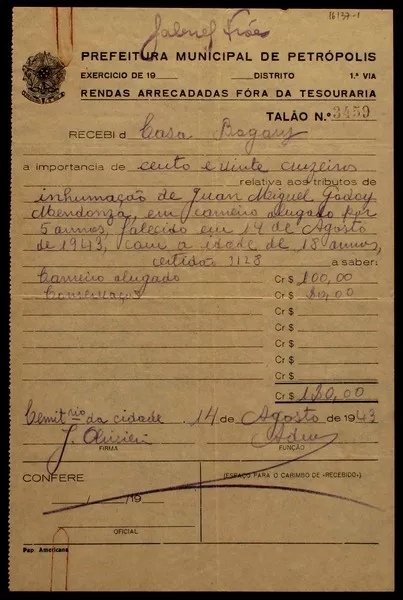 16137-1
Gabriel Fróes
PREFEITURA MUNICIPAL DE PETRÓPOLIS
EXERCICIO DE 19____ ____DISTRITO 1.ª VIA
RENDAS ARRECADADAS FÓRA DA TESOURARIA
TALÃO N.º 3459
RECEBI d Casa Bagany
a importancia de cento e vinte cruzeiros
relativa aos tributos de
inhumação de Juan Miguel Godoy
Mendonza, em carneiro alugado por
5 annos, falecido em 14 de Agosto
de 1943, com a idade de 18 annos,
certidão 3128 a saber:
Carneiro alugado Cr $ 100,00
Conservação Cr $ 20,00
Cr $
Cr $
Cr $
Cr $
Cr $ 120,00
Cemit rio da cidade 14 de Agosto de 1943
J. Oliveira Adm
FIRMA FUNÇÃO
CONFERE (ESPAÇO PARA O CARIMBO DE «RECEBIDO»)
____/____/19____
OFICIAL
Pap. Americana